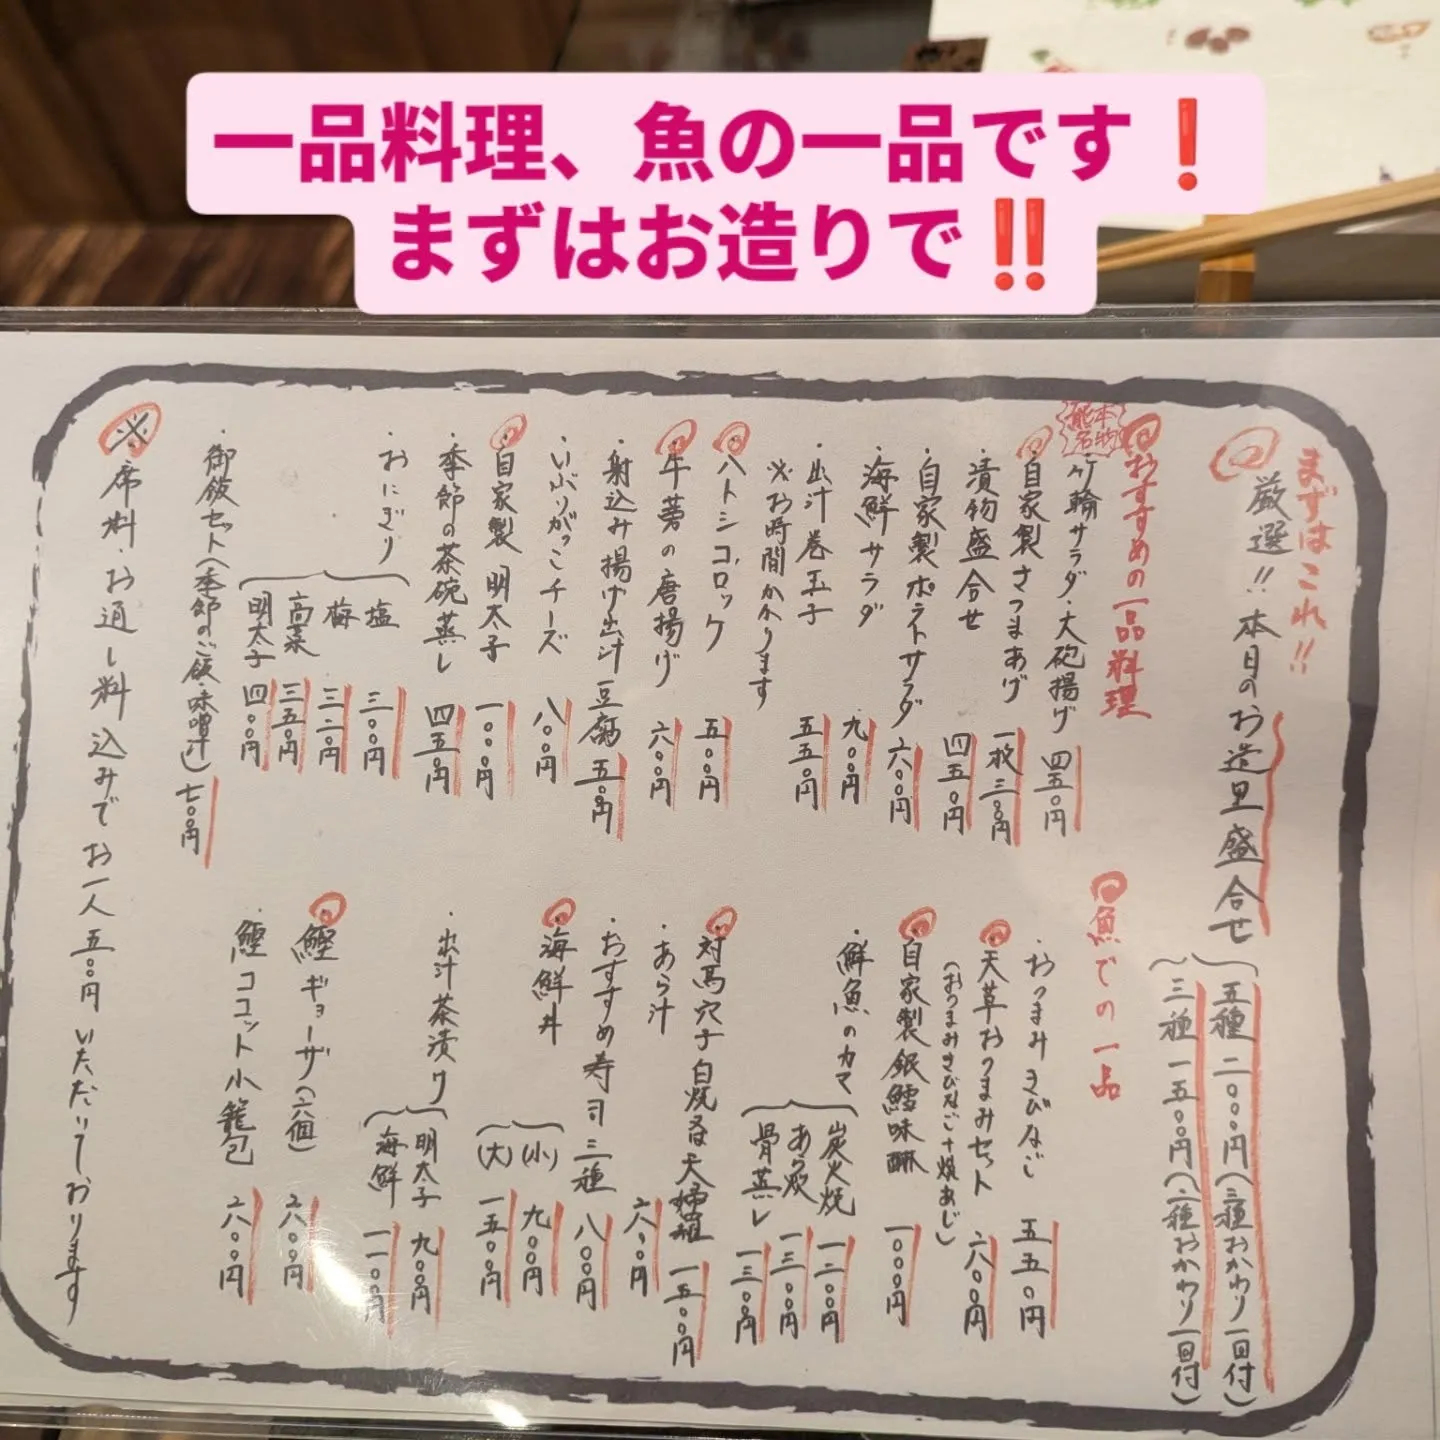 一品料理、魚の一品です❗
まずはお造りで‼️
まずはこれ!!
厳選!!本日のお造里盛合せ
五種 二〇〇〇円(三種おかわり一回付)
三種 一五〇〇円(二種おかわり一回付)
おすすめの一品料理
熊本名物
・竹輪サラダ・大砲揚げ 四五〇円
自家製さつまあげ 一枚三〇〇円
・漬物盛合せ 四五〇円
・自家製ポテトサラダ 六〇〇円
・海鮮サラダ 九〇〇円
・出汁巻玉子 五五〇円
※お時間かかります
・ハトシコロッケ 五〇〇円
・牛蒡の唐揚げ 六〇〇円
・射込み揚げ出汁豆腐 五〇〇円
・いぶりがっこチーズ 八〇〇円
・自家製 明太子 一〇〇〇円
・季節の茶碗蒸し 四五〇円
・おにぎり
塩 三〇〇円
梅 三二〇円
高菜 三五〇円
明太子 四〇〇円
・御飯セット(季節のご飯・味噌汁) 七〇〇円
魚での一品
・おつまみきびなご 五五〇円
・天草おつまみセット 六〇〇円
(おつまみきびなご+煩あじ)
・自家製銀鱈味醂 一〇〇〇円
・鮮魚のカマ
炭火焼 一二〇〇円
あら炊 一三〇〇円
骨蒸し 一三〇〇円
・対馬穴子白焼き 又は 天婦羅 一五〇〇円
・あら汁 六〇〇円
・おすすめ寿司三種 八〇〇円
・海鮮丼
(小) 九〇〇円
(大) 一五〇〇円
・出汁茶漬け
明太子 九〇〇円
海鮮 一一〇〇円
・鰹ギョーザ(六個) 六〇〇円
・鰹ココット小籠包 六〇〇円
※席料・お通し料込みでお一人五〇〇円いただいております